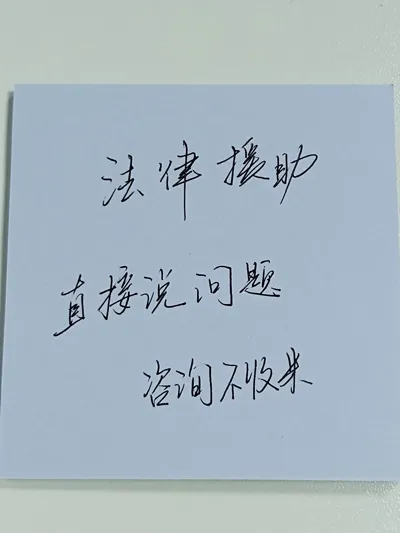 法律援助
直接说问题
咨询不收米